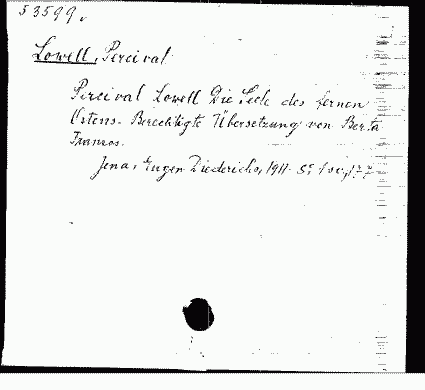 53599.
Lowell, Percival
Percival Lowell Die Seele des fernen
Ostens. Berechtigte Übersetzung von Berta
Franzos.
Jena, Eugen Diederichs, 1911. 8°